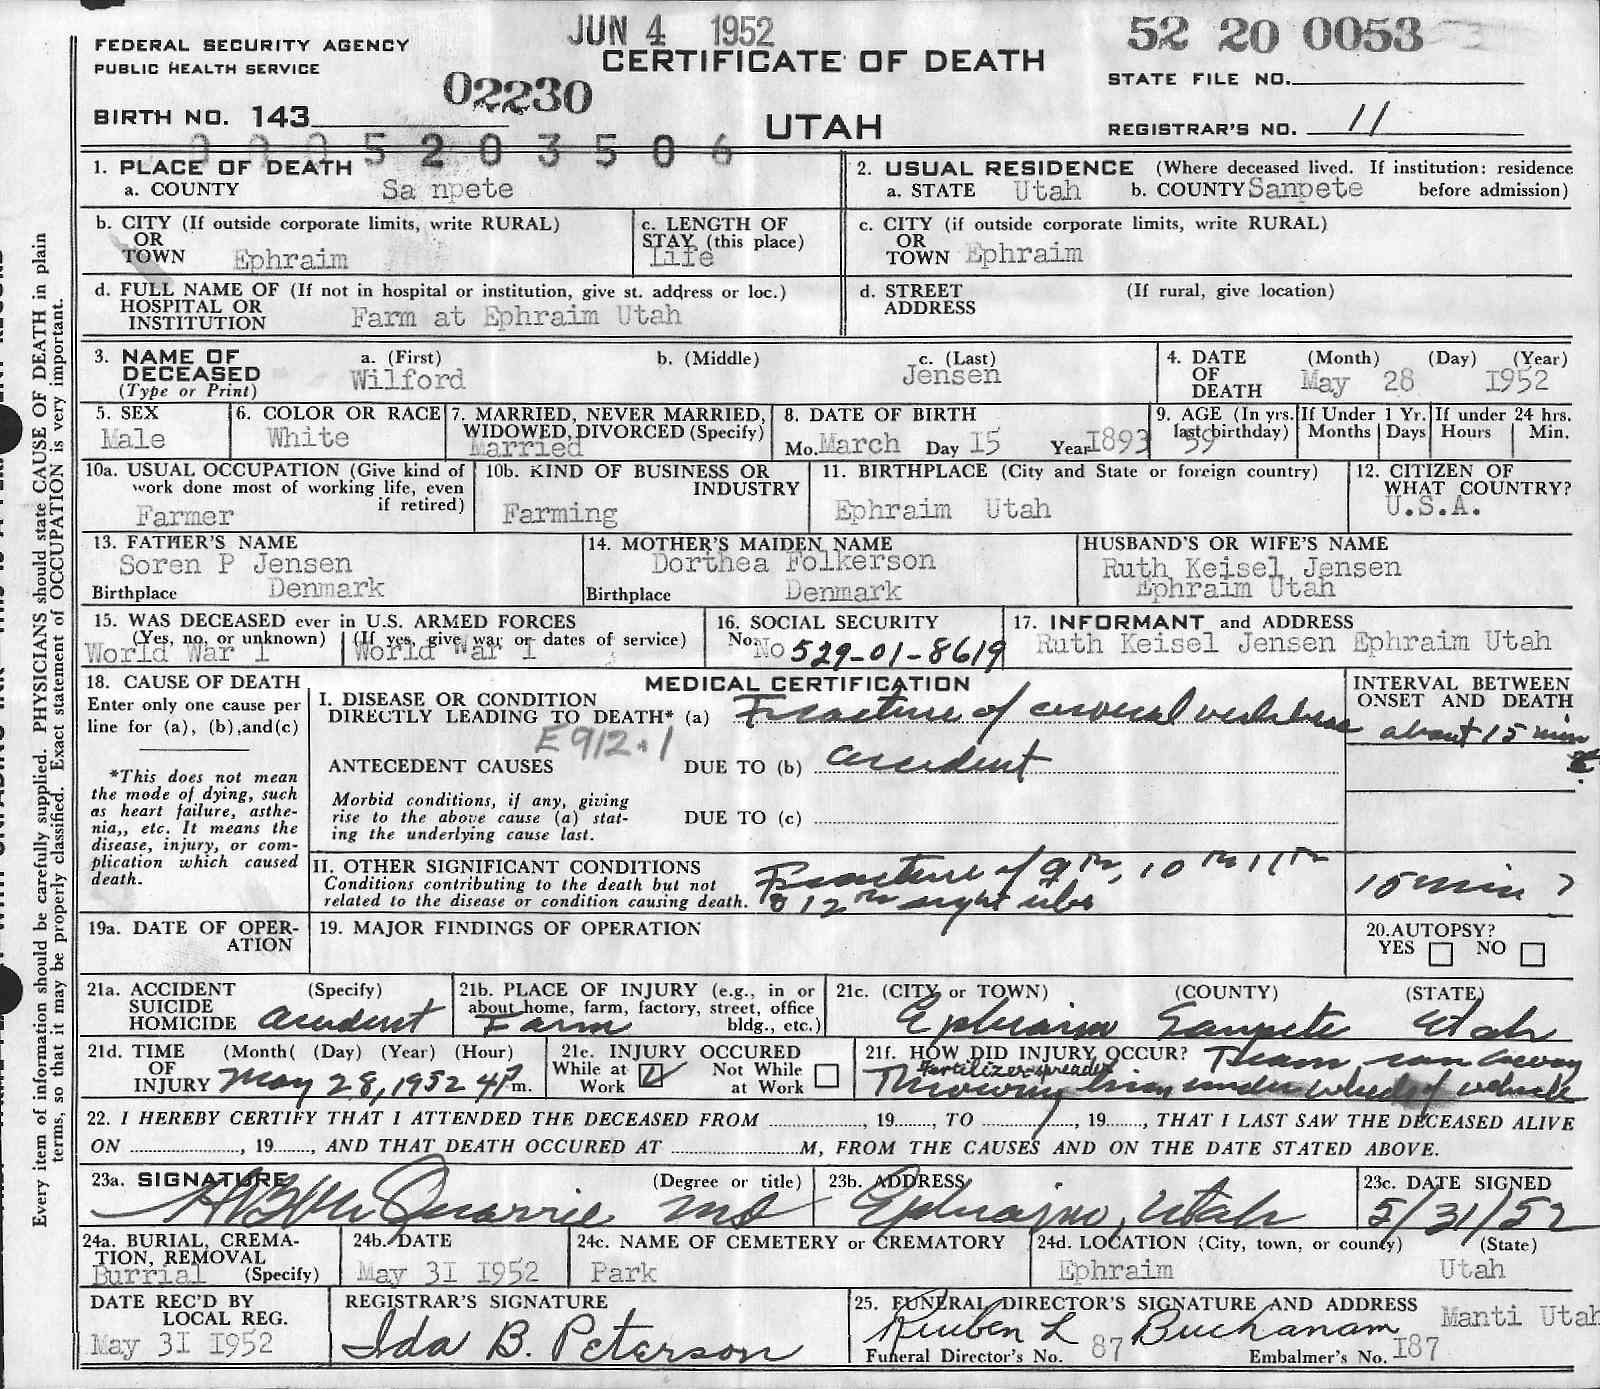 JUN 4 1952
52 20 0053
FEDERAL SECURITY AGENCY
PUBLIC HEALTH SERVICE
CERTIFICATE OF DEATH
STATE FILE NO.
02230
BIRTH NO. 143
UTAH
REGISTRAR'S NO. 11
0005203506
1. PLACE OF DEATH
a. COUNTY Sa npete
2. USUAL RESIDENCE (Where deceased lived. If institution: residence
a. STATE Utah b. COUNTY Sanpete before admission)
b. CITY (If outside corporate limits, write RURAL)
OR
TOWN Ephraim
c. LENGTH OF
STAY (this place)
Life
c. CITY (if outside corporate limits, write RURAL)
OR
TOWN Ephraim
d. FULL NAME OF (If not in hospital or institution, give st. address or loc.)
HOSPITAL OR
INSTITUTION Farm at Ephraim Utah
d. STREET (If rural, give location)
ADDRESS
3. NAME OF DECEASED (Type or Print)
a. (First) b. (Middle) c. (Last)
Wilford Jensen
4. DATE OF DEATH (Month) (Day) (Year)
May 28 1952
5. SEX
Male
6. COLOR OR RACE
White
7. MARRIED, NEVER MARRIED,
WIDOWED, DIVORCED (Specify)
Married
8. DATE OF BIRTH
Mo. March Day 15 Year 1893
9. AGE (In yrs. last birthday) 59
If Under 1 Yr. Months Days
If under 24 hrs. Hours Min.
10a. USUAL OCCUPATION (Give kind of
work done most of working life, even
if retired)
Farmer
10b. KIND OF BUSINESS OR
INDUSTRY
Farming
11. BIRTHPLACE (City and State or foreign country)
Ephraim Utah
12. CITIZEN OF
WHAT COUNTRY?
U.S.A.
13. FATHER'S NAME
Soren P Jensen
Birthplace Denmark
14. MOTHER'S MAIDEN NAME
Dorthea Folkerson
Birthplace Denmark
HUSBAND'S OR WIFE'S NAME
Ruth Keisel Jensen
Ephraim Utah
15. WAS DECEASED ever in U.S. ARMED FORCES
(Yes, no, or unknown) (If yes, give war or dates of service)
World War 1 World War 1
16. SOCIAL SECURITY
No. No 529-01-8619
17. INFORMANT and ADDRESS
Ruth Keisel Jensen Ephraim Utah
18. CAUSE OF DEATH
Enter only one cause per
line for (a), (b), and (c)
*This does not mean
the mode of dying, such
as heart failure, asthe-
nia,, etc. It means the
disease, injury, or com-
plication which caused
death.
MEDICAL CERTIFICATION
I. DISEASE OR CONDITION
DIRECTLY LEADING TO DEATH* (a) Fracture of cervical vertebrae
E912.1
ANTECEDENT CAUSES DUE TO (b) accident
Morbid conditions, if any, giving
rise to the above cause (a) stat-
ing the underlying cause last.
DUE TO (c)
INTERVAL BETWEEN
ONSET AND DEATH
about 15 min
II. OTHER SIGNIFICANT CONDITIONS
Conditions contributing to the death but not
related to the disease or condition causing death.
Fracture of 9th, 10th 11th
& 12th right ribs
15 min ?
19a. DATE OF OPER-
ATION
19. MAJOR FINDINGS OF OPERATION
20. AUTOPSY?
YES NO
21a. ACCIDENT (Specify)
SUICIDE
HOMICIDE accident
21b. PLACE OF INJURY (e.g., in or
about home, farm, factory, street, office
bldg., etc.)
Farm
21c. (CITY or TOWN) (COUNTY) (STATE)
Ephraim Sanpete Utah
21d. TIME (Month( (Day) (Year) (Hour)
OF
INJURY May 28, 1952 4 P m.
21e. INJURY OCCURED
While at Work Not While at Work
21f. HOW DID INJURY OCCUR? Team ran away
fertilizer spreader
Throwing him under wheel of vehicle
22. I HEREBY CERTIFY THAT I ATTENDED THE DECEASED FROM , 19 , TO , 19 , THAT I LAST SAW THE DECEASED ALIVE
ON , 19 , AND THAT DEATH OCCURED AT M, FROM THE CAUSES AND ON THE DATE STATED ABOVE.
23a. SIGNATURE (Degree or title)
McQuarrie MD
23b. ADDRESS
Ephraim, Utah
23c. DATE SIGNED
5/31/52
24a. BURIAL, CREMA-
TION, REMOVAL
(Specify) Burrial
24b. DATE
May 31 1952
24c. NAME OF CEMETERY or CREMATORY
Park
24d. LOCATION (City, town, or county) (State)
Ephraim Utah
DATE REC'D BY
LOCAL REG.
May 31 1952
REGISTRAR'S SIGNATURE
Ida B. Peterson
25. FUNERAL DIRECTOR'S SIGNATURE AND ADDRESS Manti Utah
Reuben L Buchanam
Funeral Director's No. 87 Embalmer's No. 187
Every item of information should be carefully supplied. PHYSICIANS should state CAUSE OF DEATH in plain
terms, so that it may be properly classified. Exact statement of OCCUPATION is very important.